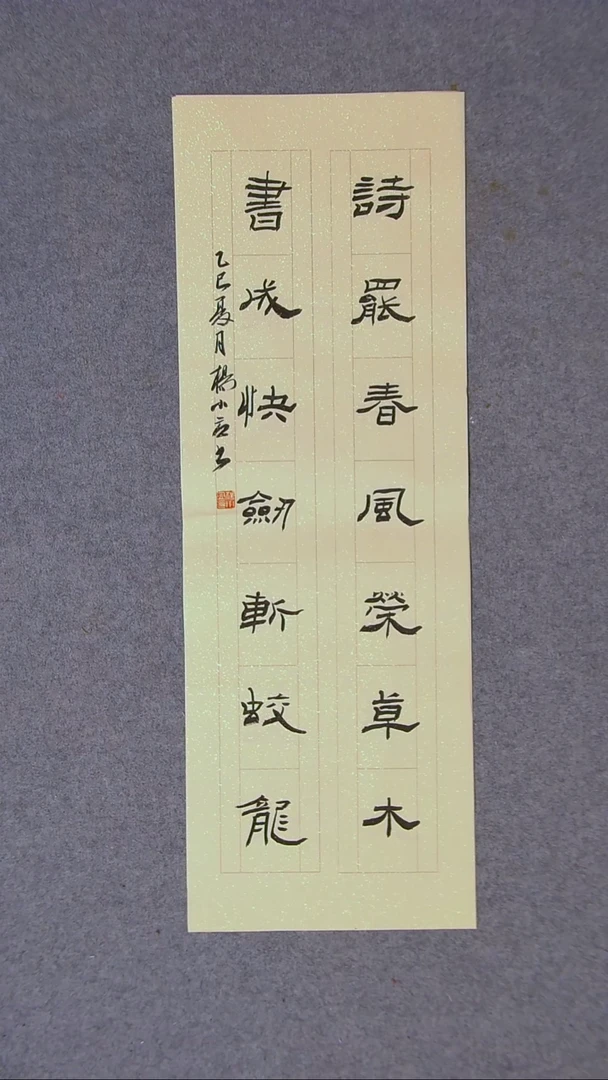 詩罷春風榮草木
書成快劔斬蛟龍
乙巳夏月楊小